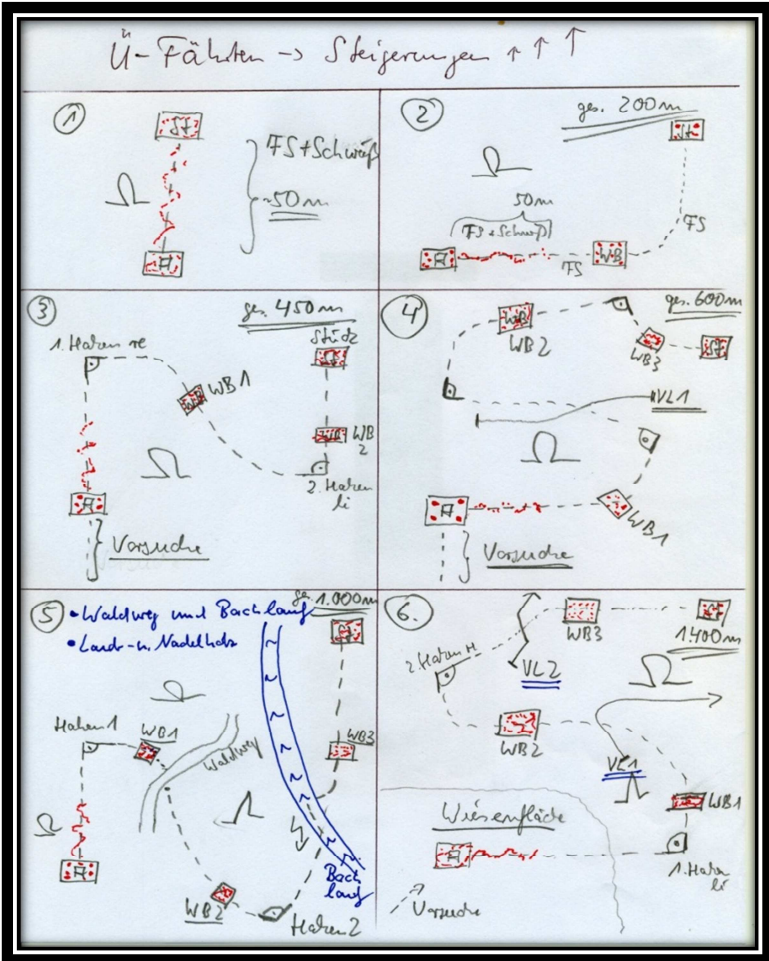 Ü-Fährten → Steigerungen ↑ ↑ ↑
1
St
FS+Schweiß
~50m
A
2
ges. 200m
St
50m
FS+Schweiß
FS
A
FS
WB
3
ges. 450m
1. Haken re
Stück
St
WB1
WB
WB
WB
2
2. Haken
li
A
Vorsuche
4
ges. 600m
WB
WB2
WB3
St
VL1
A
WB1
Vorsuche
5
• Waldweg und Bachlauf
ges. 1.000m
• Laub- u. Nadelholz
St
Haken 1
WB1
Waldweg
WB3
A
WB2
Haken 2
Bach
lauf
6.
WB3
St
1.400m
2. Haken re
VL2
WB2
VL1
WB1
Wiesenfläche
A
1. Haken
li
Vorsuche